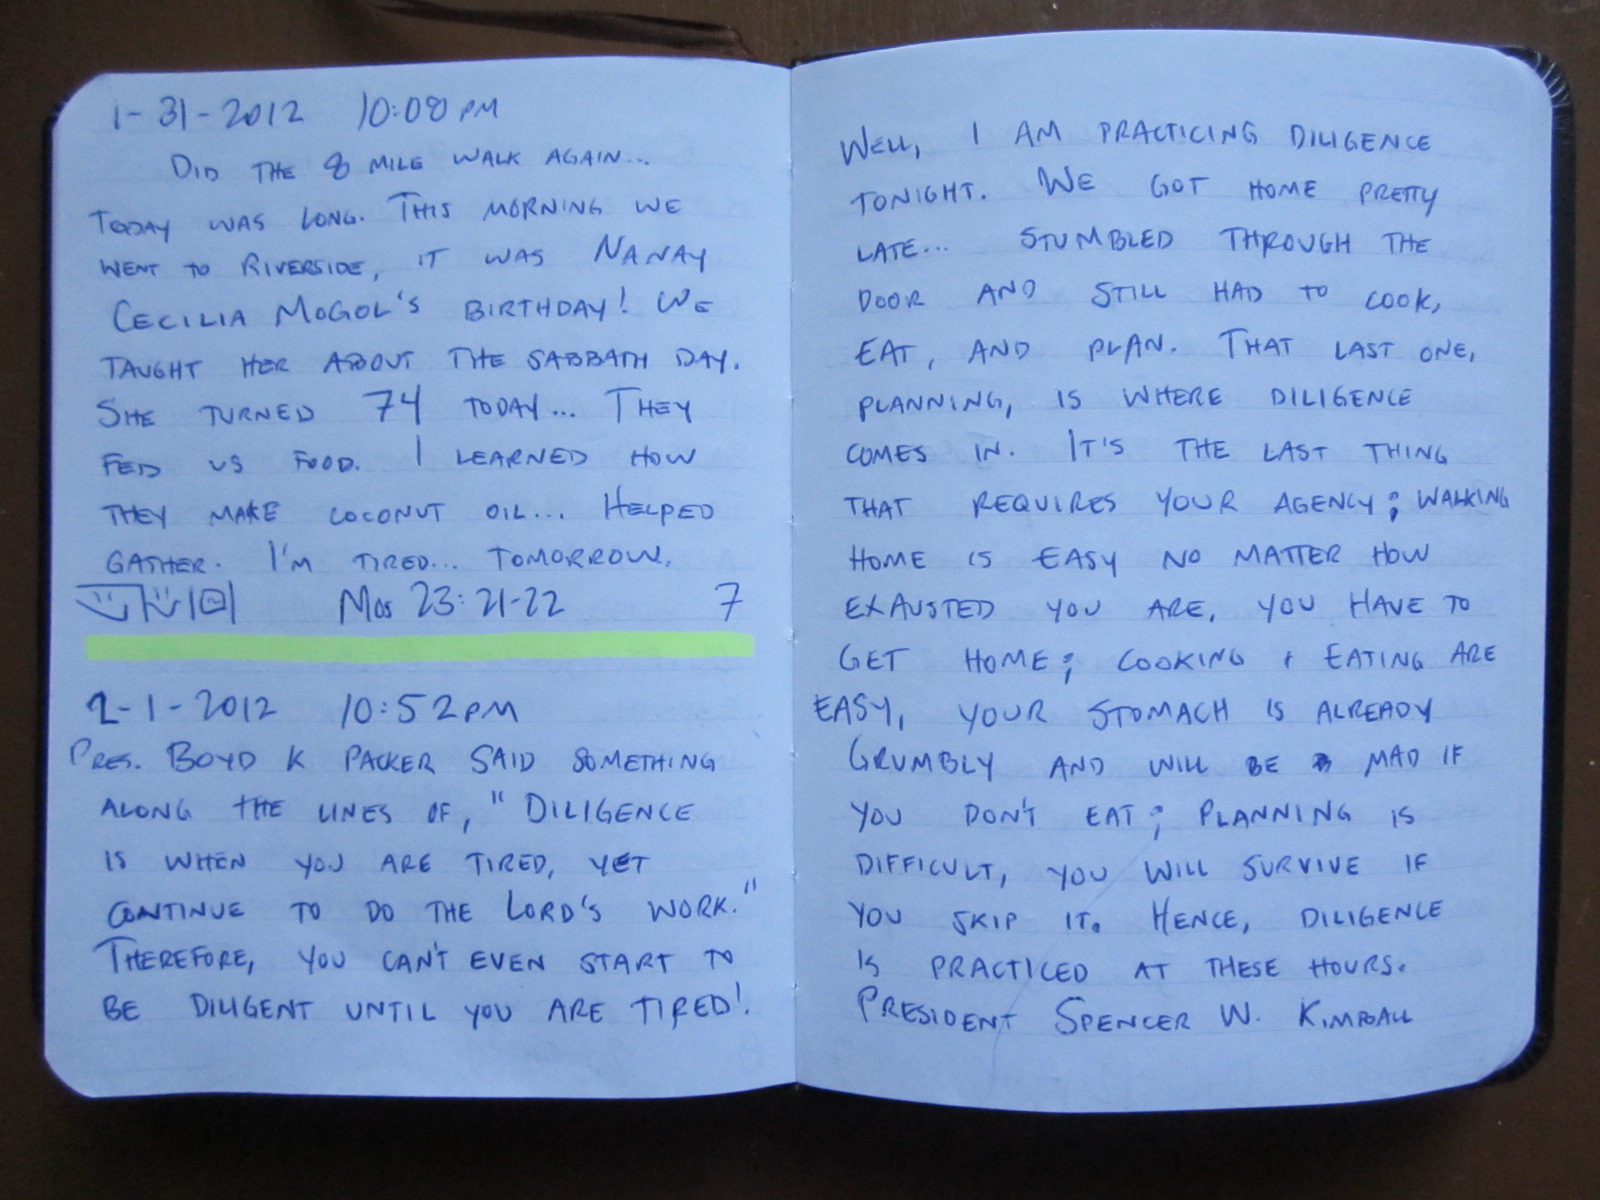 1-31-2012 10:08 PM
DID THE 8 MILE WALK AGAIN...
TODAY WAS LONG. THIS MORNING WE
WENT TO RIVERSIDE, IT WAS NANAY
CECILIA MOGOL'S BIRTHDAY! WE
TAUGHT HER ABOUT THE SABBATH DAY.
SHE TURNED 74 TODAY... THEY
FED US FOOD. I LEARNED HOW
THEY MAKE COCONUT OIL... HELPED
GATHER. I'M TIRED... TOMORROW.
Mos 23:21-22 7
2-1-2012 10:52 PM
PRES. BOYD K PACKER SAID SOMETHING
ALONG THE LINES OF, "DILIGENCE
IS WHEN YOU ARE TIRED, YET
CONTINUE TO DO THE LORD'S WORK."
THEREFORE, YOU CAN'T EVEN START TO
BE DILIGENT UNTIL YOU ARE TIRED!
WELL, I AM PRACTICING DILIGENCE
TONIGHT. WE GOT HOME PRETTY
LATE... STUMBLED THROUGH THE
DOOR AND STILL HAD TO COOK,
EAT, AND PLAN. THAT LAST ONE,
PLANNING, IS WHERE DILIGENCE
COMES IN. IT'S THE LAST THING
THAT REQUIRES YOUR AGENCY; WALKING
HOME IS EASY NO MATTER HOW
EXAUSTED YOU ARE, YOU HAVE TO
GET HOME; COOKING + EATING ARE
EASY, YOUR STOMACH IS ALREADY
GRUMBLY AND WILL BE MAD IF
YOU DON'T EAT; PLANNING IS
DIFFICULT, YOU WILL SURVIVE IF
YOU SKIP IT. HENCE, DILIGENCE
IS PRACTICED AT THESE HOURS.
PRESIDENT SPENCER W. KIMBALL